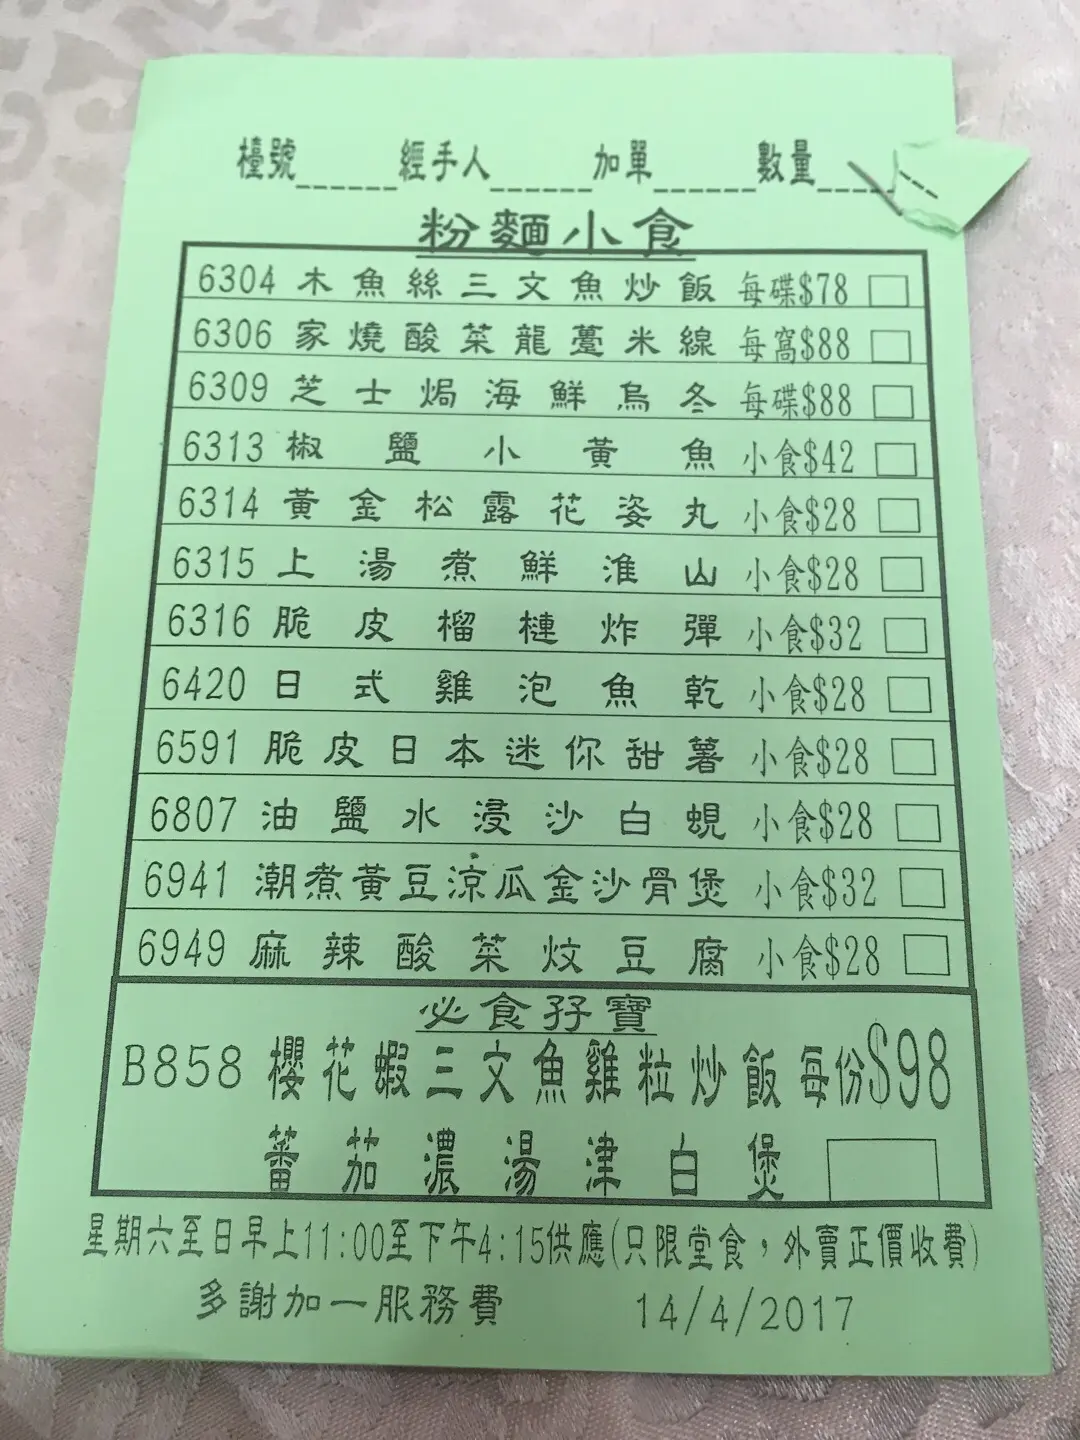 檯號______經手人______加單______數量______
粉麵小食
6304 木魚絲三文魚炒飯 每碟$78
6306 家燒酸菜龍躉米線 每窩$88
6309 芝士焗海鮮烏冬 每碟$88
6313 椒鹽小黃魚 小食$42
6314 黃金松露花姿丸 小食$28
6315 上湯煮鮮淮山 小食$28
6316 脆皮榴槤炸彈 小食$32
6420 日式雞泡魚乾 小食$28
6591 脆皮日本迷你甜薯 小食$28
6807 油鹽水浸沙白蜆 小食$28
6941 潮煮黃豆涼瓜金沙骨煲 小食$32
6949 麻辣酸菜炆豆腐 小食$28
必食孖寶
B858 櫻花蝦三文魚雞粒炒飯 每份$98
蕃茄濃湯津白煲
星期六至日早上11:00至下午4:15供應(只限堂食，外賣正價收費)
多謝加一服務費 14/4/2017